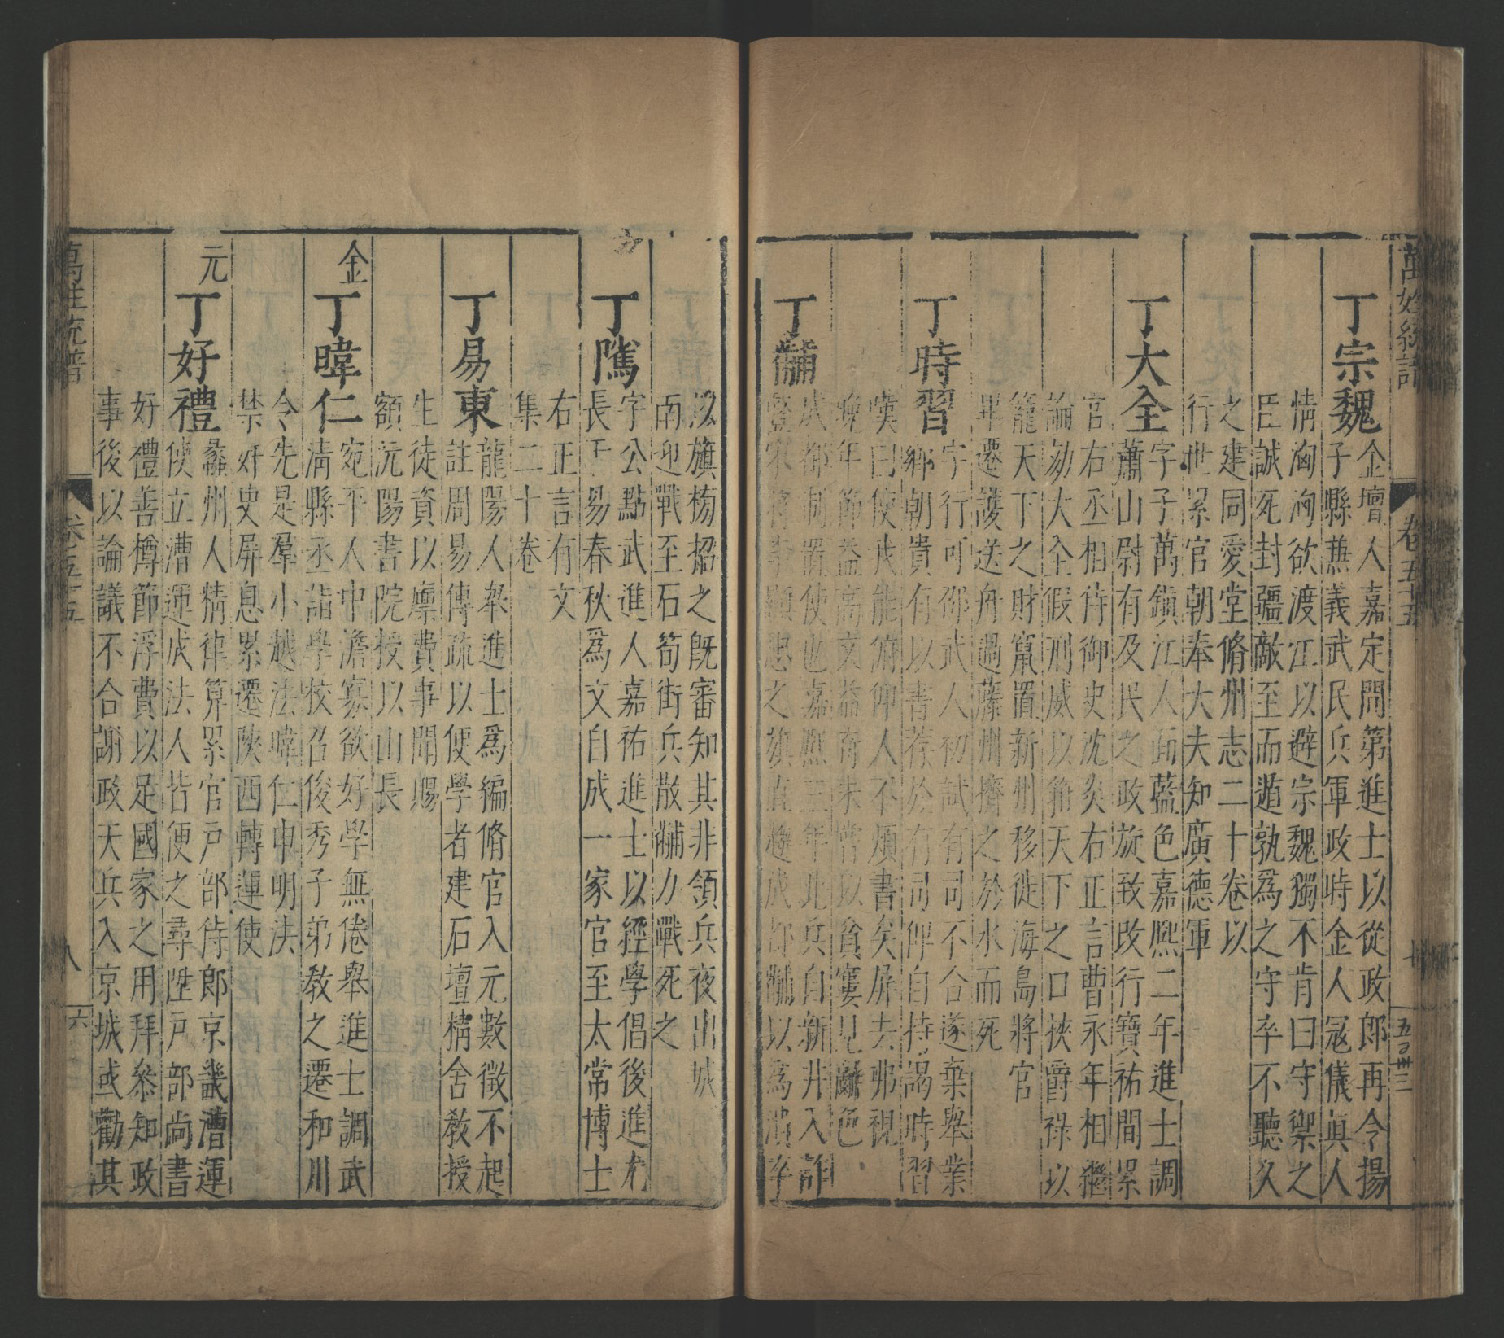 萬姓統譜
卷五十五
五百卅三
丁宗魏
金壇人嘉定間第進士以從政郎再令揚
子縣兼義武民兵軍政時金人冦儀眞人
情洶洶欲渡江以避宗魏獨不肯曰守禦之
臣誠死封疆敵至而遁孰爲之守卒不聽久
之建同愛堂脩州志二十卷以
行世累官朝奉大夫知廣德軍
丁大全
字子萬鎮江人面藍色嘉熙二年進士調
蕭山尉有及民之政旋致政行寶祐間累
官右丞相侍御史沈炎右正言曹永年相繼
論劾大全假刑威以箝天下之口挾爵祿以
籠天下之財竄置新州移徙海島將官
畢遷護送舟過藤州擠之於水而死
丁時習
字行可邵武人初試有司不合遂棄舉業
鄉朝貴有以書荐於有司俾自持謁時習
嘆曰使我能俯仰人不煩書矣屏去弗視
晚年節益高文益奇未嘗以貧窶見顏色
丁黼
成都制置使也嘉熙三年北兵自新井入詐
豎宋將李顯忠之旗直趨成都黼以爲潰卒
以旗榜招之旣審知其非領兵夜出城
南迎戰至石筍街兵散黼力戰死之
丁隲
字公點武進人嘉祐進士以經學倡後進尤
長于易春秋爲文自成一家官至太常博士
右正言有文
集二十卷
丁易東
龍陽人舉進士爲編脩官入元數徵不起
註周易傳疏以便學者建石壇精舍敎授
生徒資以廪費事聞賜
額沅陽書院授以山長
金
丁暐仁
宛平人中澹寡欲好學無倦舉進士調武
清縣丞詣學校召俊秀子弟敎之遷和川
令先是羣小越法暐仁申明決
禁奸史屏息累遷陝西轉運使
元
丁好禮
蠡州人精律算累官戶部侍郎京畿漕運
使立漕運成法人皆便之尋陞戶部尚書
好禮善樽節浮費以足國家之用拜叅知政
事後以論議不合謝政天兵入京城或勸其
萬姓統譜
卷五十五
八
六